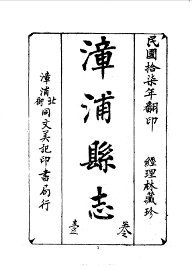 民國拾柒年翻印
經理林藏珍
漳浦縣志
叁
壹
漳浦北街同文美記印書局行